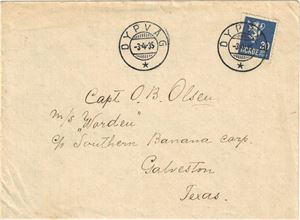 DYPVÅG
-3·4·35
DYPVÅG
-3
20
NORGE
Capt O. B. Olsen
m/s "Worden"
c/o Southern Banana corp.
Galveston
Texas.